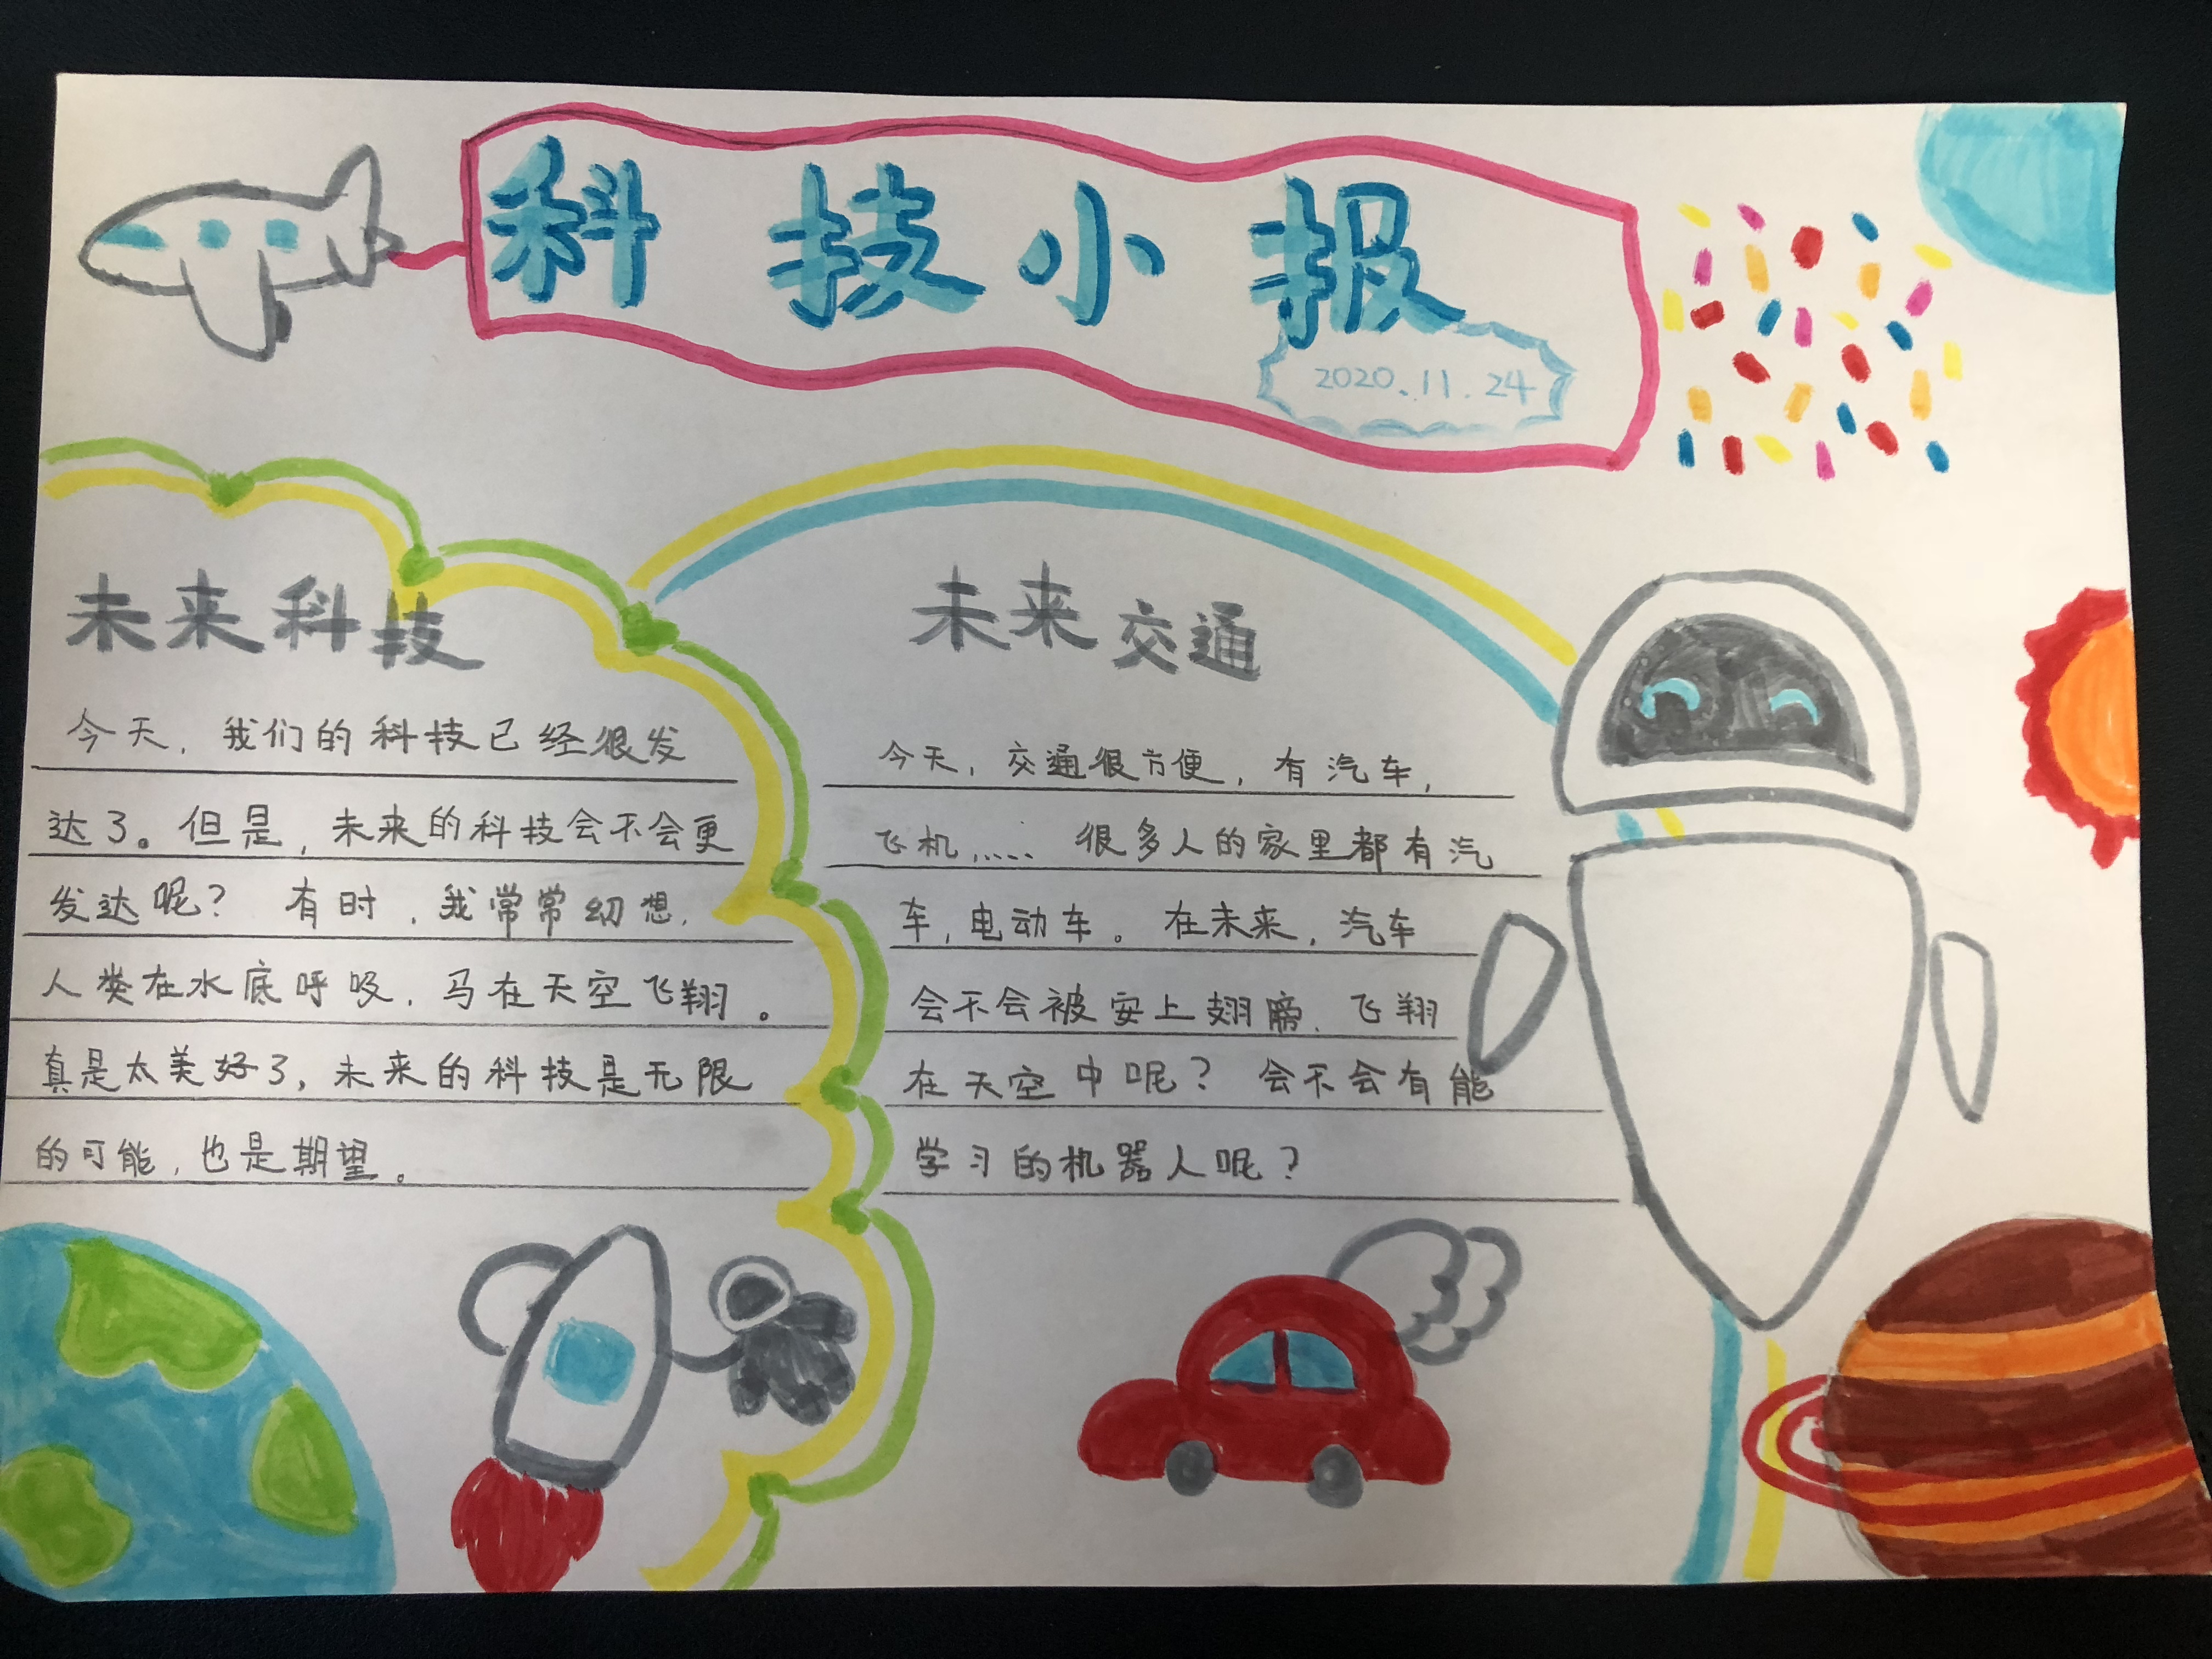 科技小报
2020.11.24
未来科技
今天，我们的科技已经很发
达了。但是，未来的科技会不会更
发达呢？有时，我常常幻想，
人类在水底呼吸，马在天空飞翔。
真是太美好了，未来的科技是无限
的可能，也是期望。
未来交通
今天，交通很方便，有汽车，
飞机，…… 很多人的家里都有汽
车，电动车。在未来，汽车
会不会被安上翅膀，飞翔
在天空中呢？会不会有能
学习的机器人呢？